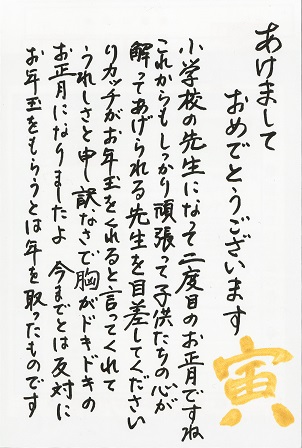 あけまして
おめでとうございます
寅
小学校の先生になって二度目のお正月ですね
これからもしっかり頑張って子供たちの心が
解ってあげられる先生を目差してください
りカッチがお年玉をくれると言ってくれて
うれしさと申し訳なさで胸がドキドキの
お正月になりましたよ 今までとは反対に
お年玉をもらうとは年を取ったものです